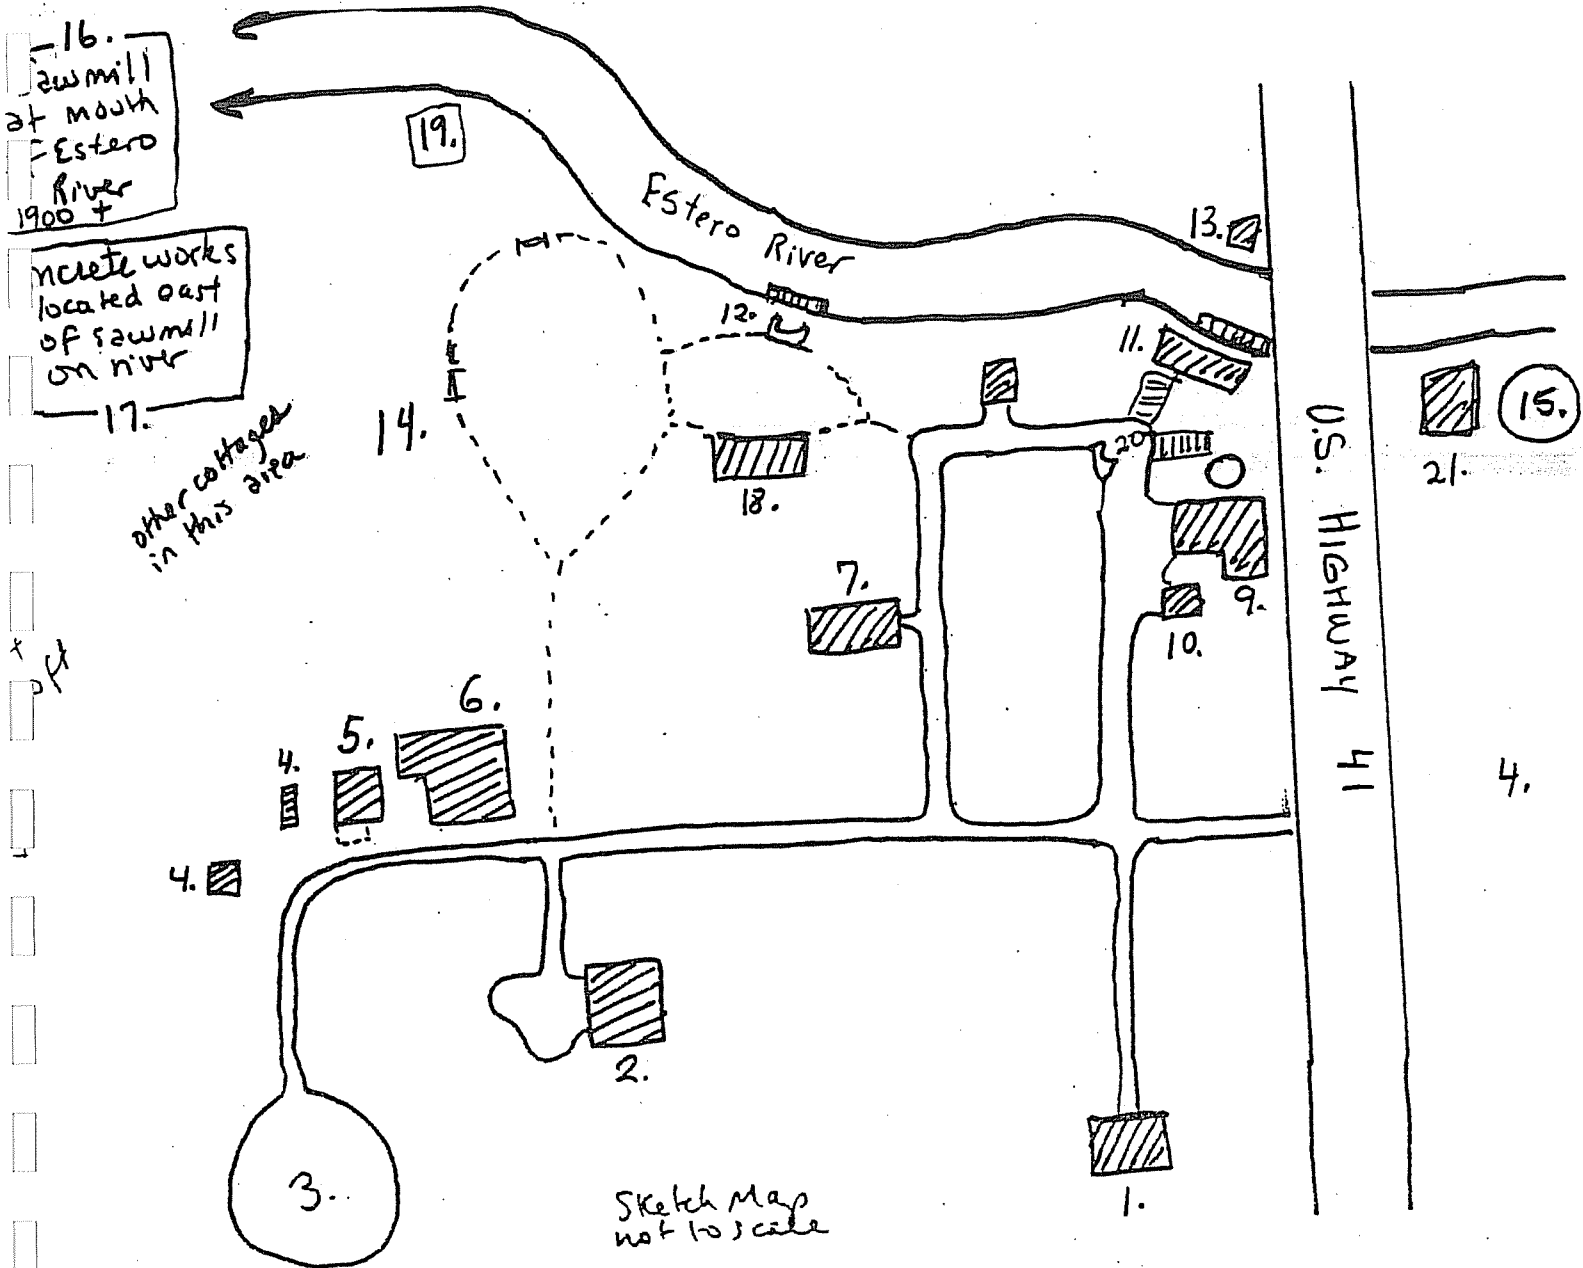 16.
awmill
at mouth
Estero
River
1900 +
ncrete works
located east
of sawmill
on river
17.
other cottages
in this area
19.
Estero River
13.
12.
11.
14.
18.
20
15.
21.
U.S. HIGHWAY 41
7.
9.
10.
6.
5.
4.
4.
4.
2.
3.
1.
Sketch Map
not to scale